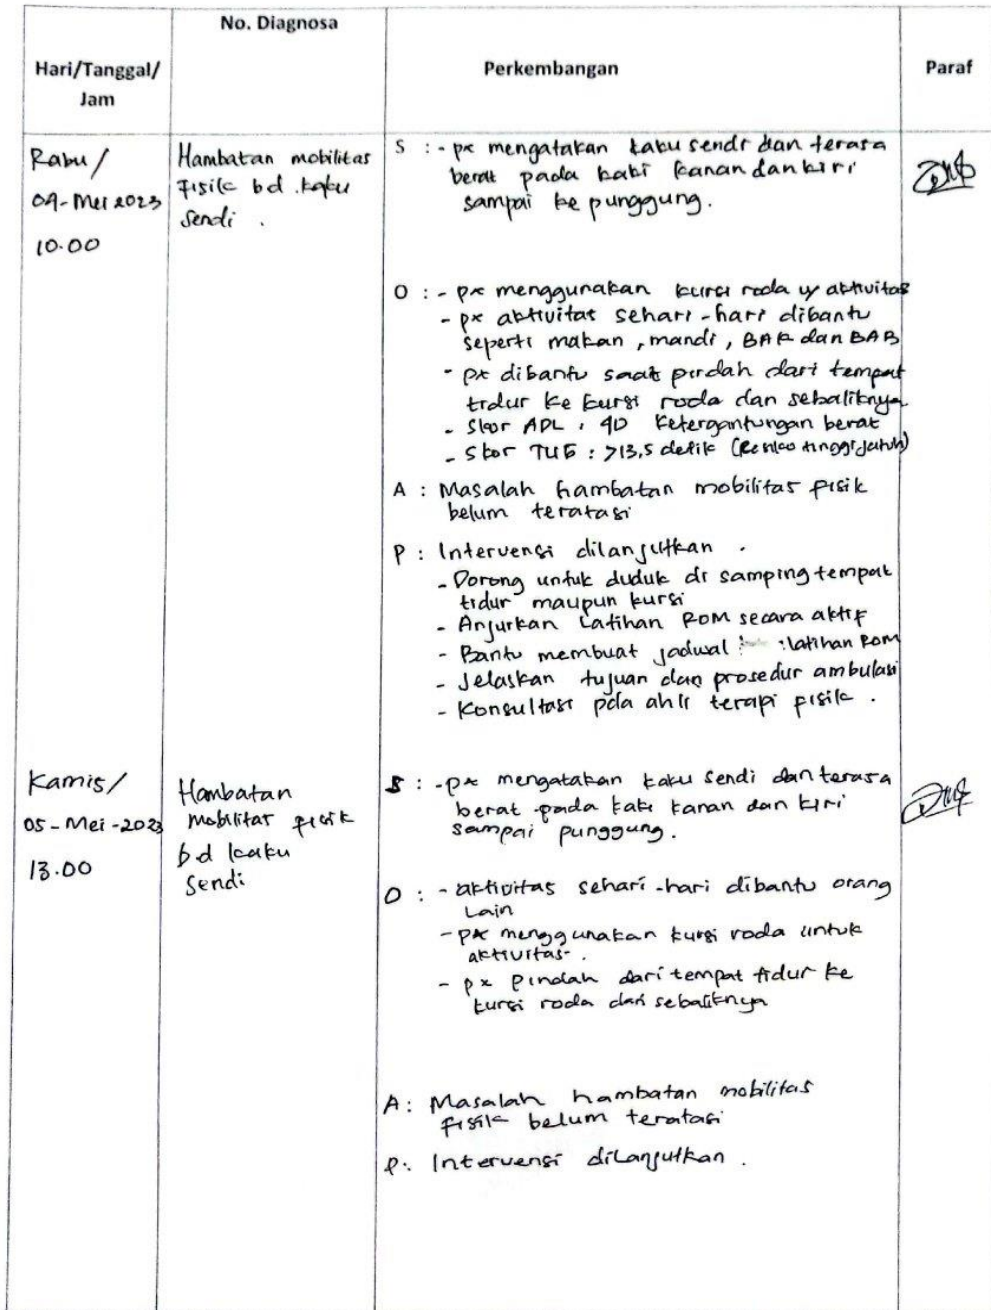 No. Diagnosa
Hari/Tanggal/
Jam
Perkembangan
Paraf
Rabu/
04-Mei 2023
10.00
Hambatan mobilitas
fisik bd. kaku
sendi.
S : - px mengatakan kaku sendi dan terasa
berat pada kaki kanan dan kiri
sampai ke punggung.
O : - px menggunakan kursi roda u/ aktivitas
- px aktivitas sehari-hari dibantu
seperti makan, mandi, BAK dan BAB
- px dibantu saat pindah dari tempat
tidur ke kursi roda dan sebaliknya
- Skor ADL : 40 Ketergantungan berat
- Skor TUG : >13,5 detik (Resiko tinggi jatuh)
A : Masalah hambatan mobilitas fisik
belum teratasi
P : Intervensi dilanjutkan .
- Dorong untuk duduk di samping tempat
tidur maupun kursi
- Anjurkan Latihan ROM secara aktif
- Bantu membuat jadwal latihan ROM
- Jelaskan tujuan dan prosedur ambulasi
- Konsultasi pda ahli terapi fisik .
Kamis/
05-Mei-2023
13.00
Hambatan
mobilitas fisik
b.d kaku
sendi
S : - px mengatakan kaku sendi dan terasa
berat pada kaki kanan dan kiri
sampai punggung.
O : - aktivitas sehari-hari dibantu orang
Lain
- px menggunakan kursi roda untuk
aktivitas.
- px pindah dari tempat tidur ke
kursi roda dan sebaliknya
A : Masalah hambatan mobilitas
fisik belum teratasi
P : Intervensi dilanjutkan .